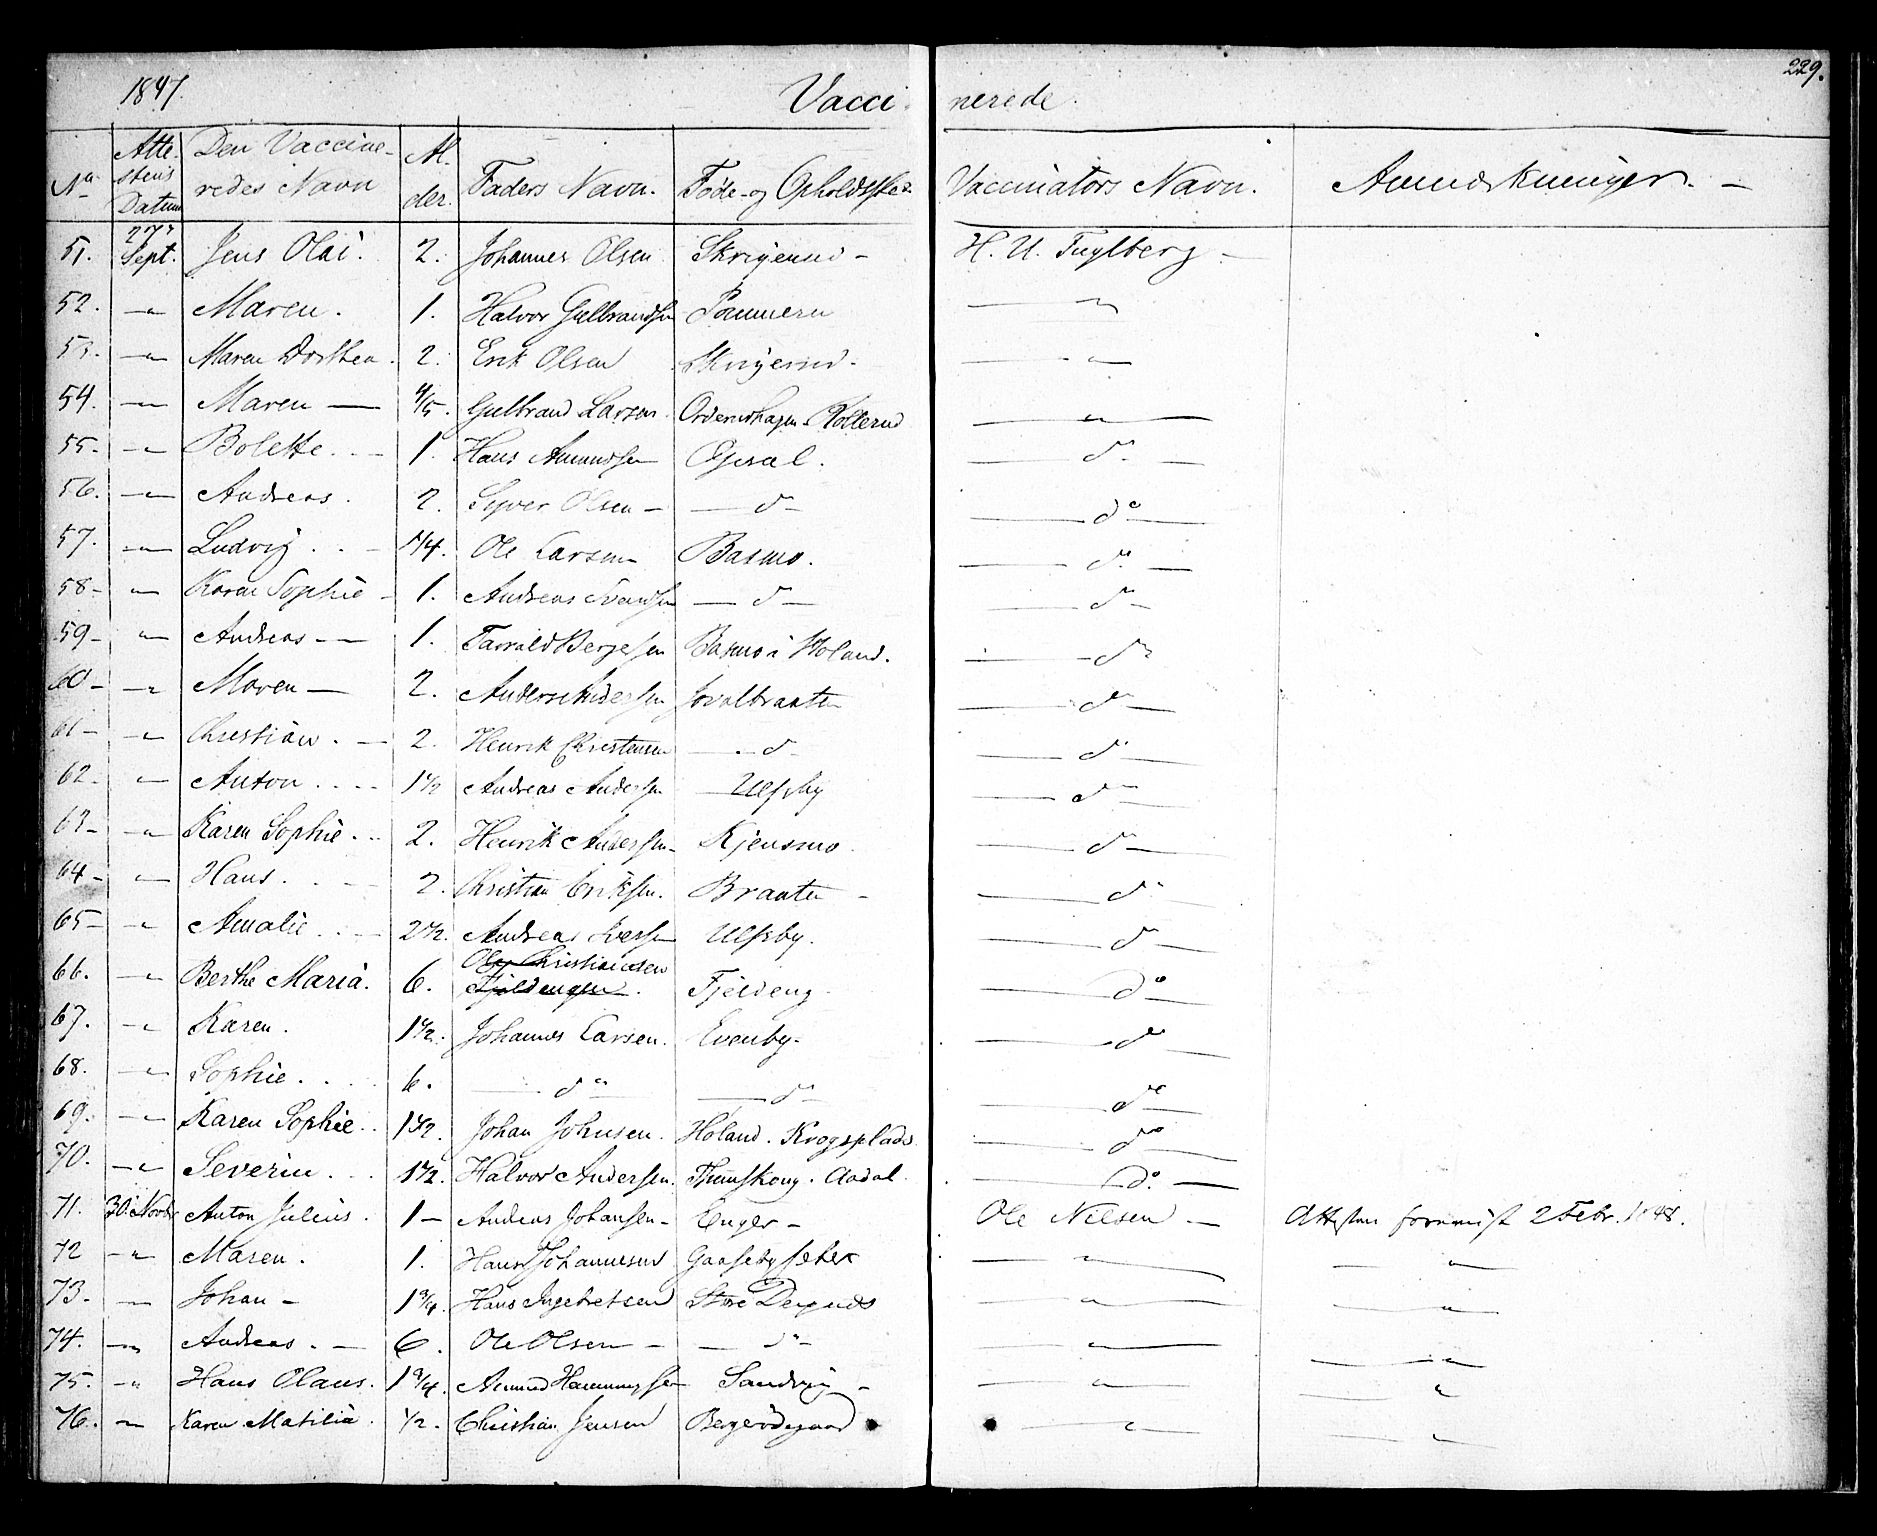 1847. Vaccinerede. 229.
No Attestens Datum Den Vaccineredes Navn Alder. Faders Navn. Føde- og Opholdssted Vaccinators Navn. Anmærkninger. —
51. 27de Sept. Jens Olai. 2. Johannes Olsen — H. U. Fuglberg —
52. — " — Maren. 1. Halvor Gulbrandsen Pommern — " —
53. — " — Maren Dorthea. 2. Erik Olsen — " —
54. — " — Maren — 4/5. Gulbrand Larsen — " —
55. — " — Bolette. 1. Hans Amundsen Øgsal. — do —
56. — " — Andreas. 2. Syver Olsen — — do — — do —
57. — " — Ludvig. 5/4. Ole Larsen Basmo. — do —
58 — " — Karen Sophie — 1. Andreas Svendsen — do — — do —
59 — " — Andreas — 1. Tarrald Bergesen Basmo i Høland. — do —
60 — " — Maren — 2. Anders Andersen — do —
61 — " — Christian. — 2. Henrik Christensen — do — — do —
62. — " — Anton. 1 1/2 Andreas Andersen Ulfsby — do —
63 — " — Karen Sophie. 2. Henrik Andersen — Kjensmo — do —
64 — " — Hans. 2. Christian Eriksen. Braaten — — do —
65 — " — Amalie. 2 1/2. Andreas Iversen Ulfsby. — do —
66. — " — Berthe Maria. 6. Ole Christiansen Fjeldengen. Fjeldeng — do —
67. — " — Karen. 1 1/2. Johannes Larsen. Evenby — do —
68. — " — Sophie. 6. — do — — do — — do —
69. — " — Karen Sophie. 1 1/2. Johan Johnsen. Høland. Krogsplads — do —
70. — " — Severin. 1 1/2. Halvor Andersen. Aadal. — do —
71. 30 Novbr Anton Julius. 1 — Andreas Johansen — Enger — Ole Nilsen — Attesten foreviist 2 Febr. 1848.
72 — " — Maren. 1. Hans Johannesen Gaasebysæter — " — — " —
73. — " — Johan — 1 3/4. Hans Ingebretsen Store — " — — " —
74. — " — Andreas. — 6. Ole Olsen — — do — — " — — " —
75. — " — Hans Olaus. 1 3/4. Amund Hemmingsen Sandvig — — " — "
76. — " — Karen Matilia. 1/2. Christian Jensen — " — — " —